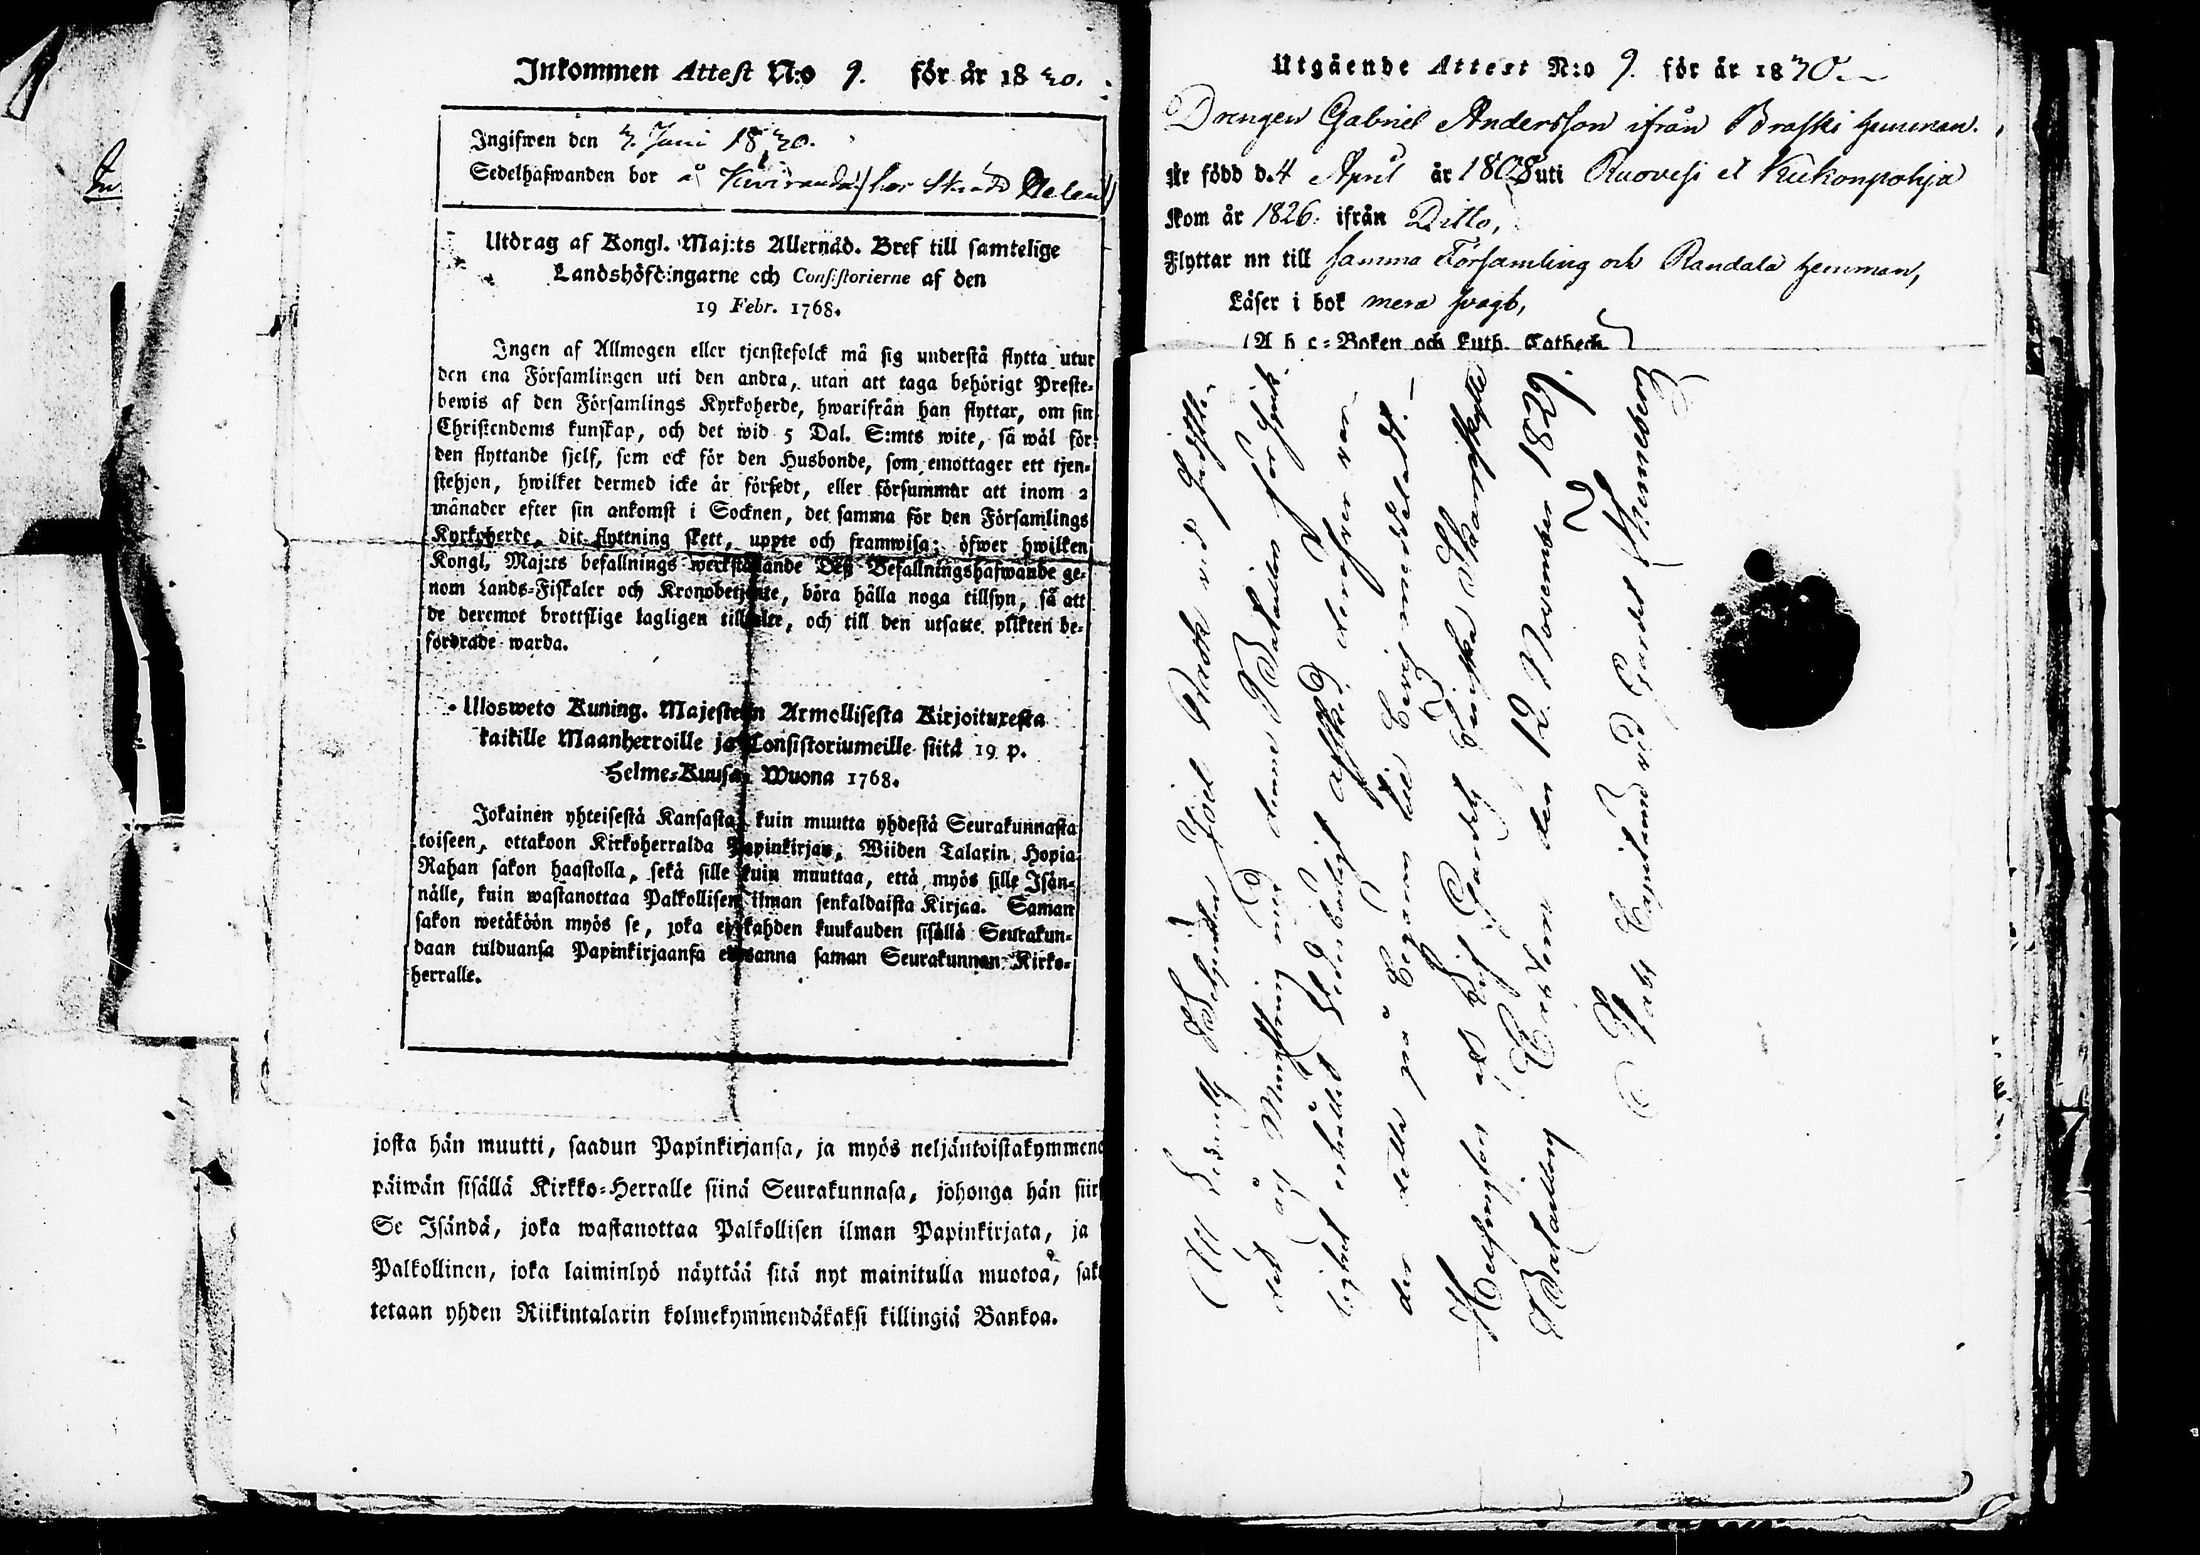 Inkommen Attest N:o 9. för år 1830.
Ingifwen den 3. Juni 1830.
Sedelhafwanden bor å
Utdrag af Kongl. Maj:ts Allernåd. Bref till samtelige
Landshöfdingarne och Consistorierne af den
19 Febr. 1768.
Ingen af Allmogen eller tjenstefolck må sig understå flytta utur
den ena Församlingen uti den andra, utan att taga behörigt Preste-
bewis af den Församlings Kyrkoherde, hwarifrån han flyttar, om sin
Christendoms kunskap, och det wid 5 Dal. S:mts wite, så wäl för
den flyttande sjelf, som ock för den Husbonde, som emottager ett tjen-
stehjon, hwilket dermed icke är försedt, eller försummar att inom 2
månader efter sin ankomst i Socknen, det samma för den Församlings
Kyrkoherde, dit flyttning skett, uppte och framwisa; öfwer hwilken
Kongl. Maj:ts befallnings werkställande Dess Befallningshafwande ge-
nom Lands-Fiskaler och Kronobetjente, böra hålla noga tillsyn, så att
de deremot brottslige lagligen tilltalte, och till den utsatte plikten be-
fordrade warda.
Ulosweto Kuning. Majestetin Armollisesta Kirjoituxesta
kaikille Maanherroille ja Consistoriumeille siitä 19 p.
Helme-Kuusa Wuona 1768.
Jokainen yhteisestä Kansasta, kuin muutta yhdestä Seurakunnasta
toiseen, ottakoon Kirkoherralda Papinkirjan, Wiiden Talarin Hopia
Rahan sakon haastolla, sekä sille kuin muuttaa, että myös sille Isän-
nälle, kuin wastanottaa Palkollisen ilman senkaldaista Kirjaa. Saman
sakon wetäköön myös se, joka ei kahden kuukauden sisällä Seurakun-
daan tulduansa Papinkirjaansa edesanna saman Seurakunnan Kirko-
herralle.
josta hän muutti, saadun Papinkirjansa, ja myös neljäntoistakymmene
päiwän sisällä Kirkko-Herralle siinä Seurakunnasa, johonga hän siir
Se Isändä, joka wastanottaa Palkollisen ilman Papinkirjata, ja
Palkollinen, joka laiminlyö näyttää sitä nyt mainitulla muotoa, sak
tetaan yhden Riikintalarin kolmekymmendäkaksi killingiä Bankoa.
Utgående Attest N:o 9. för år 1830.
Drengen Gabriel Andersson ifrån Braski hemman.
är född d. 4 April år 1808 uti Ruovesi et Kukonpohja
Kom år 1826. ifrån Ditto,
Flyttar nu till samma Församling och Randala hemman,
Läser i bok mera svagt,
(A b c-Boken och Luth. Cathech.
Joel Rask vid
det år Mönstring med denne Bataillon
lighet erhållit afsked
der detta på Begäran till Bevis meddeladt.
Helsingfors och Lif Gardets Finska Skarpskytte
Bataillons den 12 November 1829.
Stabs Capitaine vid Gardet